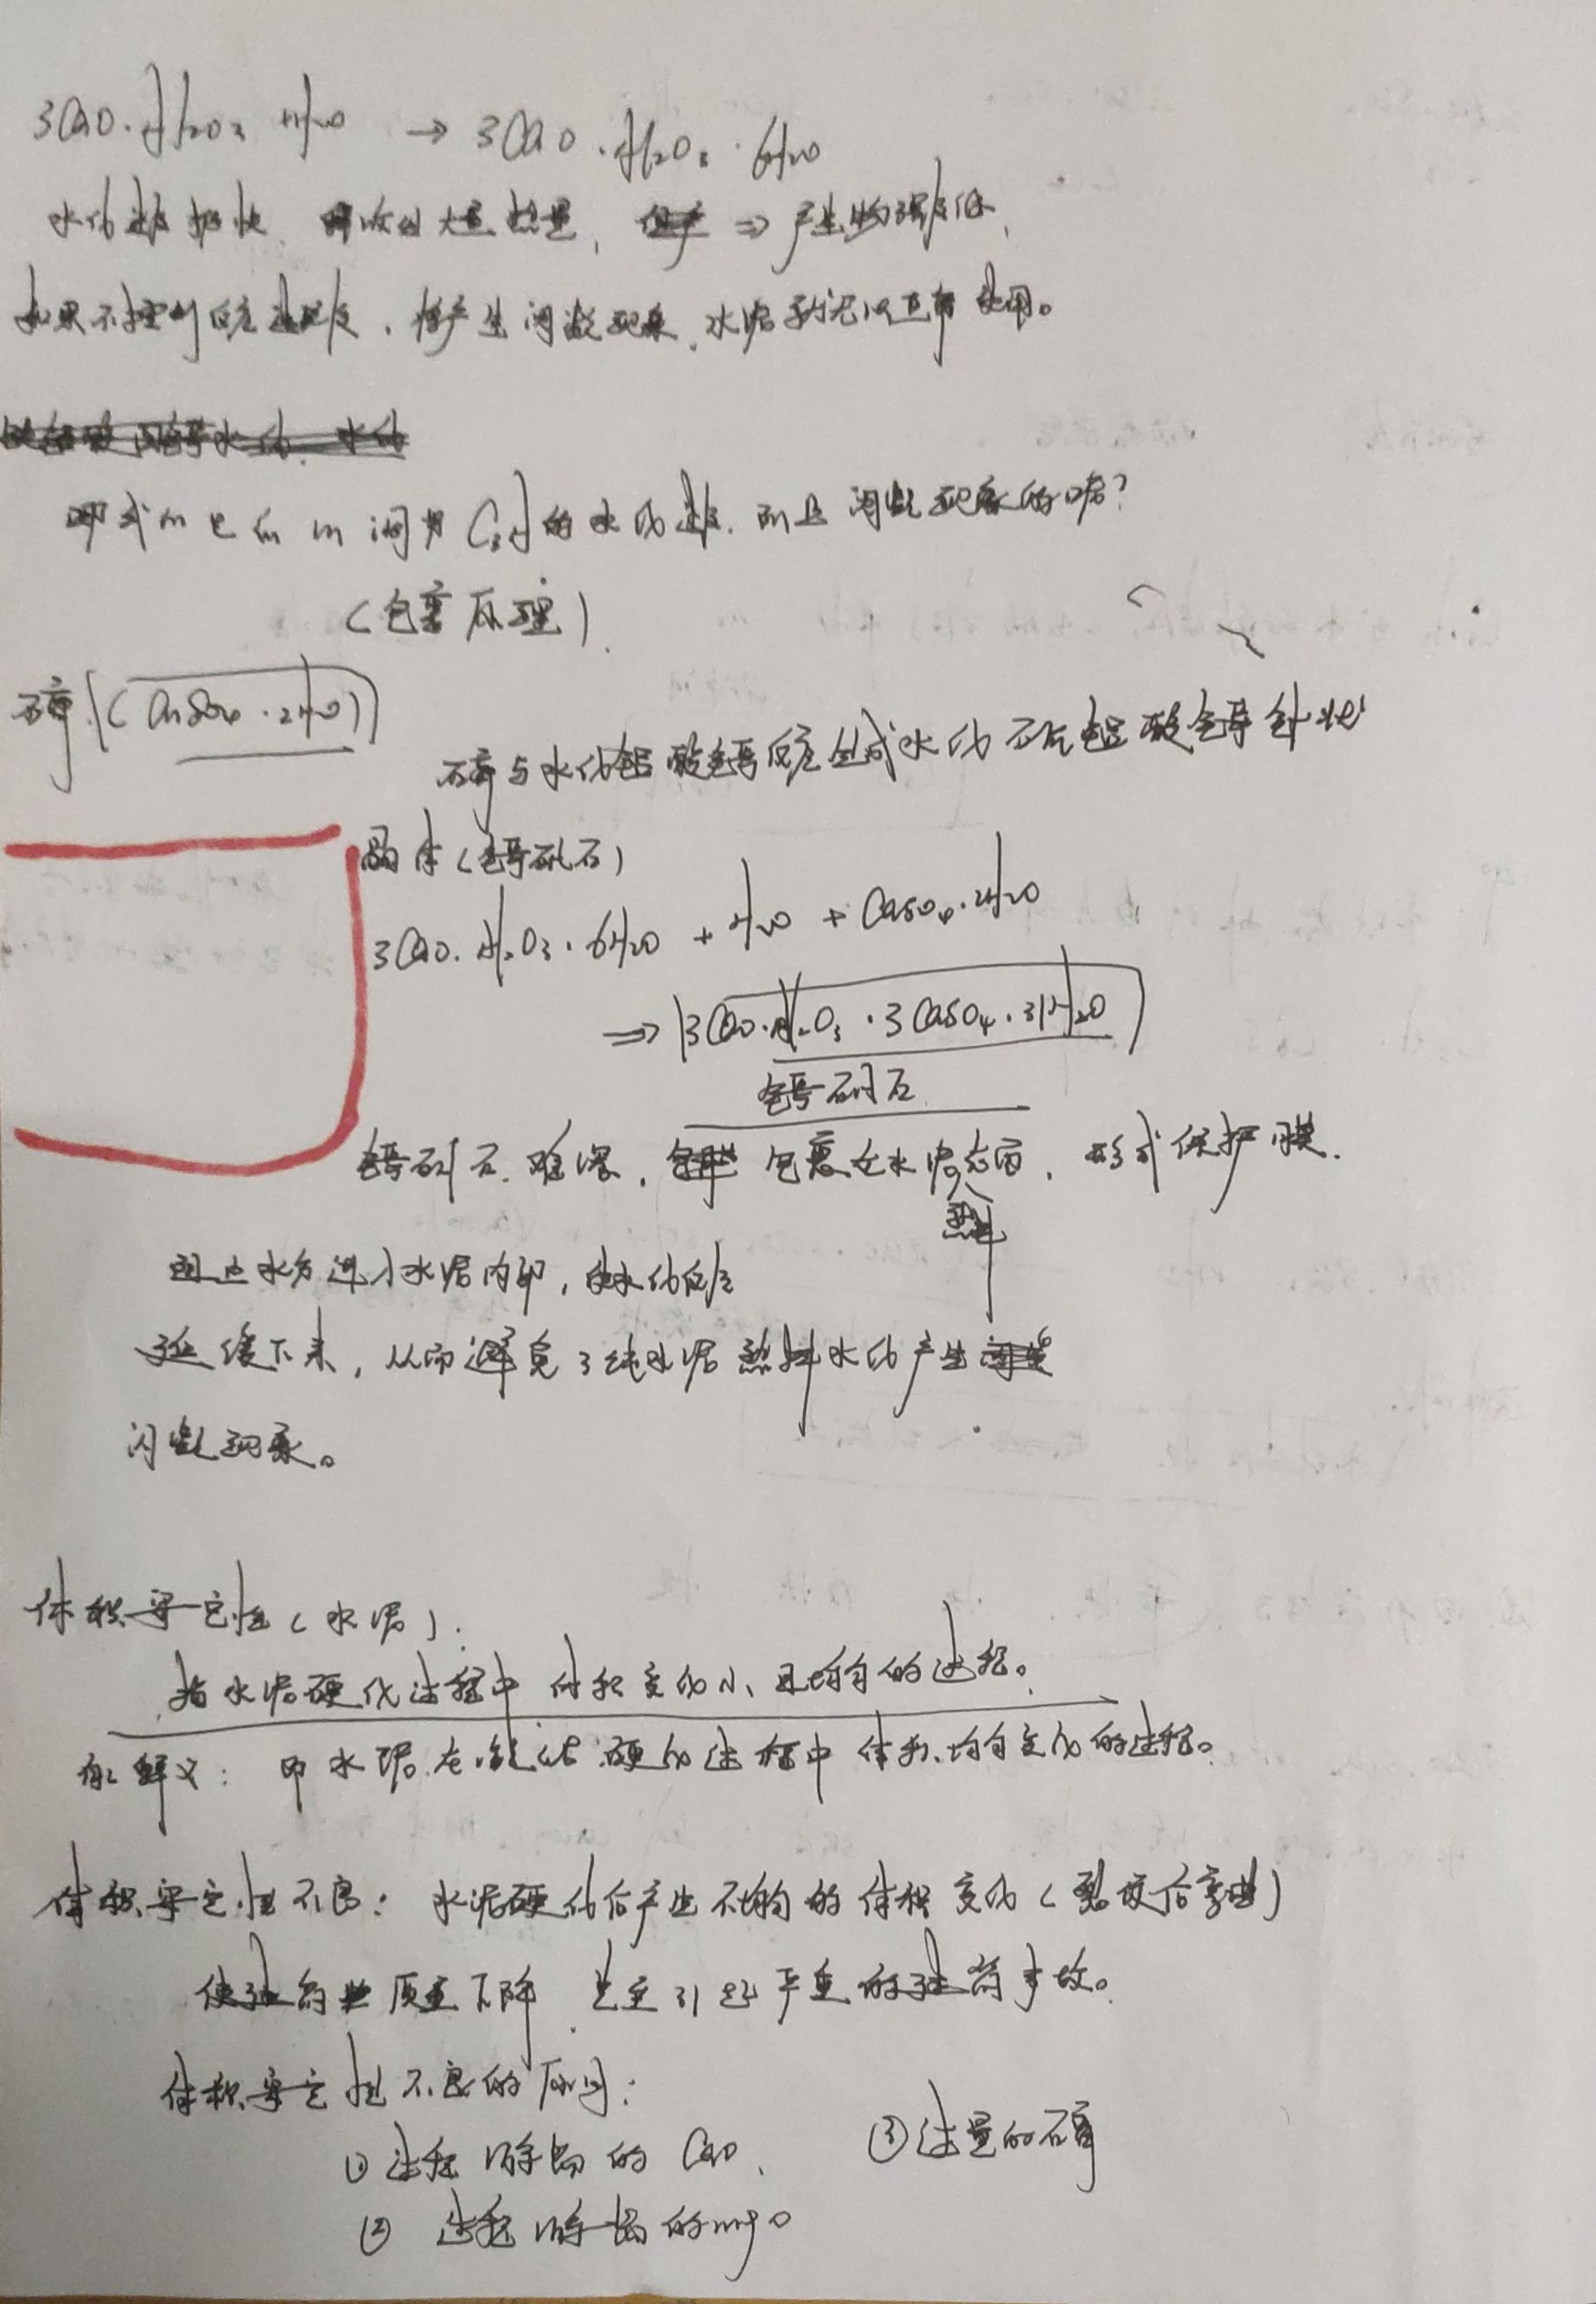 3CaO·Al2O3 + H2O → 3CaO·Al2O3·6H2O
水化速度极快、放出大量热量, ⇒ 产生物强度低,
如果不控制反应速度,将产生闪凝现象,水泥就无法正常使用。
C3A的水化速度, 闪凝现象的呢?
(包裹原理)
石膏(CaSO4·2H2O)
石膏与水化铝酸钙反应生成水化硫铝酸钙针状
晶体(钙矾石)
3CaO·Al2O3·6H2O + H2O + CaSO4·2H2O
⇒ 3CaO·Al2O3·3CaSO4·31H2O
钙矾石
钙矾石难溶, 包裹在水泥熟料表面, 形成保护膜.
阻止水分进入水泥内部,使水化反应
延缓下来,从而避免了纯水泥熟料水化产生
闪凝现象。
体积安定性(水泥):
指水泥硬化过程中体积变化小、且均匀的过程。
解义: 即水泥在凝结硬化过程中体积均匀变化的过程。
体积安定性不良: 水泥硬化后产生不均匀的体积变化(裂纹后弯曲)
使建筑质量下降 甚至引起严重的建筑事故。
体积安定性不良的原因:
① 过程游离的CaO、 ③过量的石膏
② 过程游离的MgO